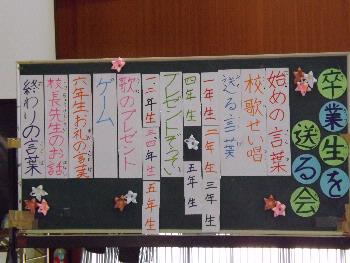 卒業生を
送る会
始めの言葉
校歌せい唱
送る言葉
一年生 二年生 三年生
四年生 五年生
プレゼントぞうてい
一二年生 三四年生 五年生
歌のプレゼント
ゲーム
六年生お礼の言葉
校長先生のお話
終わりの言葉